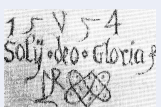 15 V 54
Solÿ · deo · Gloria